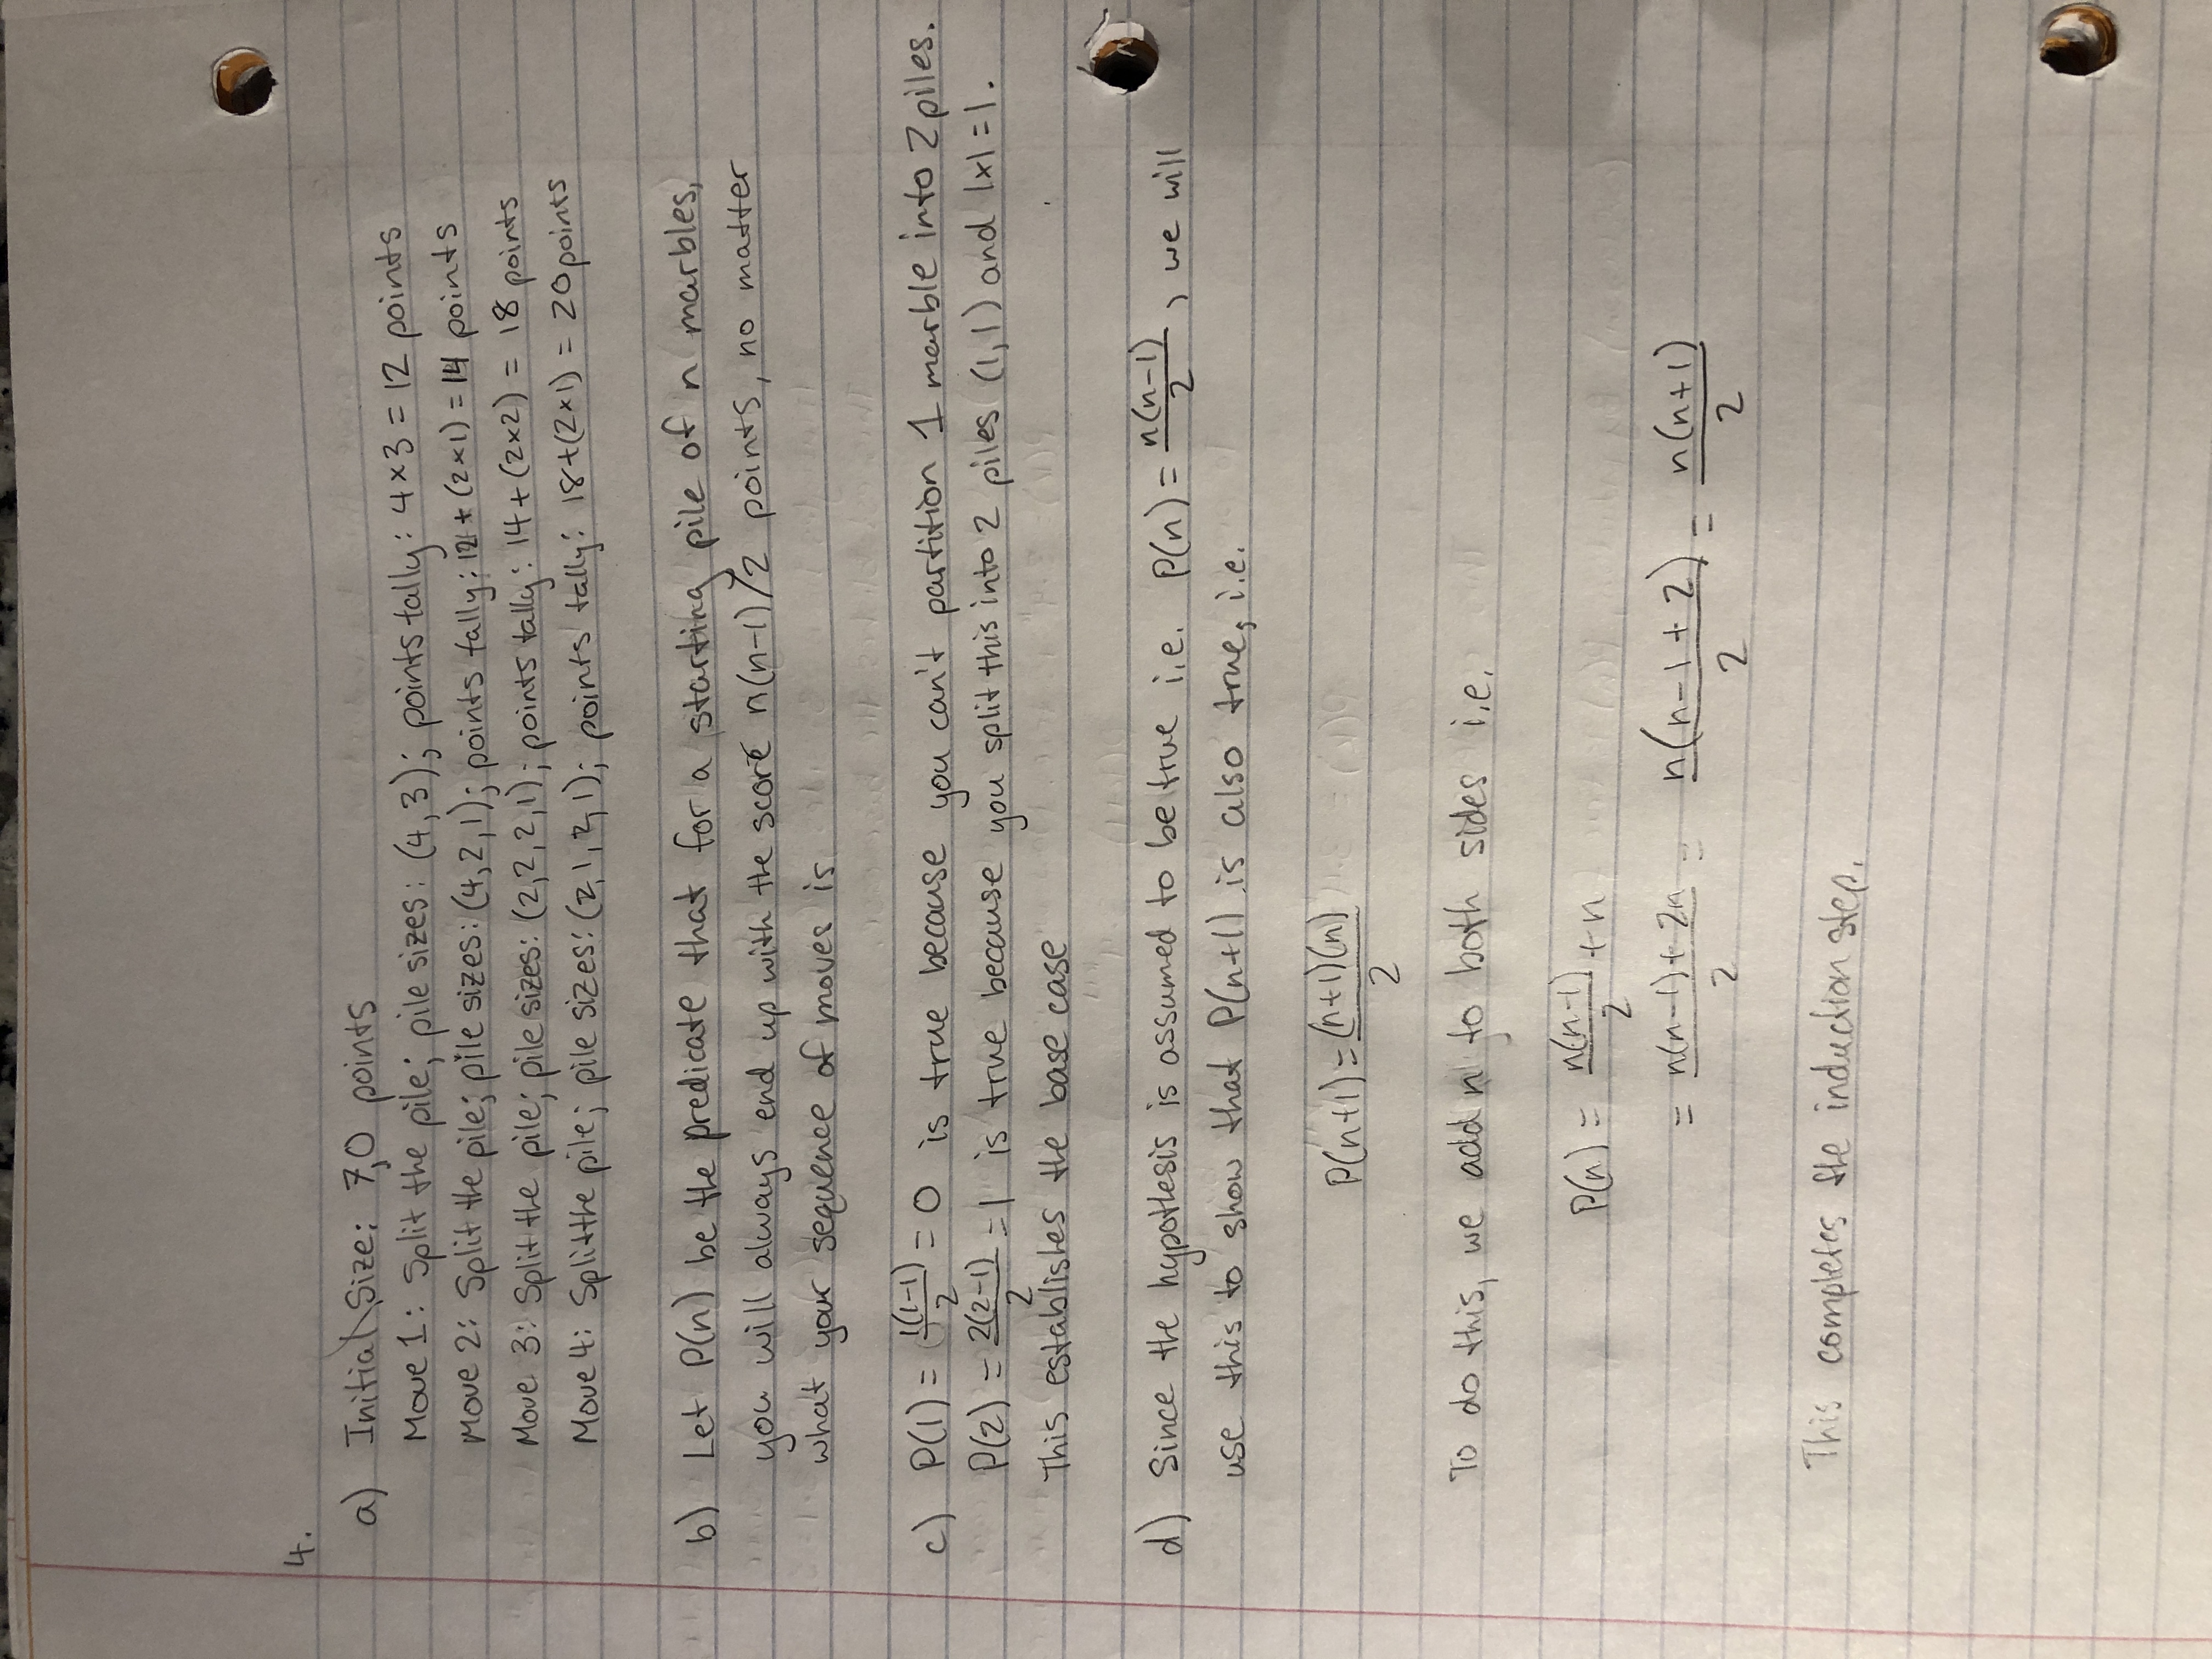 4.
a) Initial Size: 7, 0 points
Move 1: Split the pile; pile sizes: (4, 3); points tally: 4 × 3 = 12 points
Move 2: Split the pile; pile sizes: (4, 2, 1); points tally: 12 + (2×1) = 14 points
Move 3: Split the pile; pile sizes: (2, 2, 2, 1); points tally: 14 + (2×2) = 18 points
Move 4: Split the pile; pile sizes: (2, 1, 2, 1); points tally: 18+(2×1) = 20 points
b) Let P(n) be the predicate that for a starting pile of n marbles,
you will always end up with the score n(n-1)/2 points, no matter
what your sequence of moves is
c) P(1) = 1(1-1)/2 = 0 is true because you can't partition 1 marble into 2 piles.
P(2) = 2(2-1)/2 = 1 is true because you split this into 2 piles (1, 1) and 1×1 = 1.
This establishes the base case
d) Since the hypothesis is assumed to be true i.e. P(n) = n(n-1)/2, we will
use this to show that P(n+1) is also true, i.e.
P(n+1) = (n+1)(n)/2
To do this, we add n to both sides i.e.
P(n) = n(n-1)/2 + n
= n(n-1) + 2n/2 = n(n-1+2)/2 = n(n+1)/2
This completes the induction step.